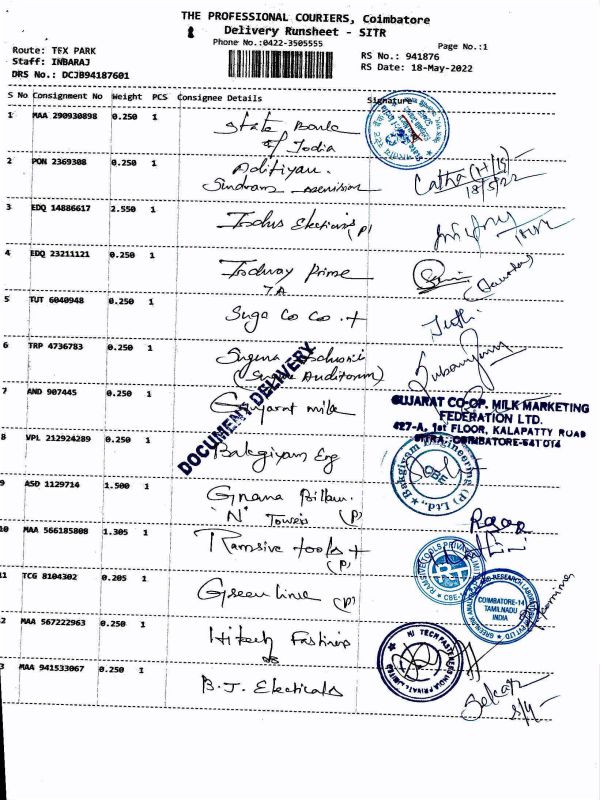 THE PROFESSIONAL COURIERS, Coimbatore
Delivery Runsheet - SITR
Phone No.:0422-3505555
Page No.:1
Route: TEX PARK
Staff: INBARAJ
DRS No.: DCJB94187601
RS No.: 941876
RS Date: 18-May-2022
S No Consignment No Weight PCS Consignee Details Signature
1 MAA 290930898 0.250 1 State Bank
of India
2 PON 2369308 0.250 1 Adithyan
18/5/22
3 EDQ 14886617 2.550 1 Indus (P)
4 EDQ 23211121 0.250 1 Indway Prime
5 TUT 6040948 0.250 1 Suga Co Co. +
6 TRP 4736783 0.250 1 Suguna
(Suguna Auditorium)
DOCUMENT DELIVERY
7 AND 907445 0.250 1 Gujarat milk
GUJARAT CO-OP. MILK MARKETING
FEDERATION LTD.
427-A, 1st FLOOR, KALAPATTY ROAD
SITRA, COIMBATORE-641 014
8 VPL 212924289 0.250 1 Bakgiyam Eng
Bakgiyam Engineering (P) Ltd.,
CBE
9 ASD 1129714 1.500 1 Gnana
"N" Towers (P)
10 MAA 566185808 1.305 1 Ramsive tools +
(P)
RAMSIVE TOOLS PRIVATE LIMITED
RT
CBE
11 TCG 8104302 0.205 1 Green line (P)
COIMBATORE-14
TAMILNADU
INDIA
2 MAA 567222963 0.250 1 Hitech Fastners
HI TECH FASTENERS INDIA PRIVATE LIMITED
3 MAA 941533067 0.250 1 B.J. Electricals